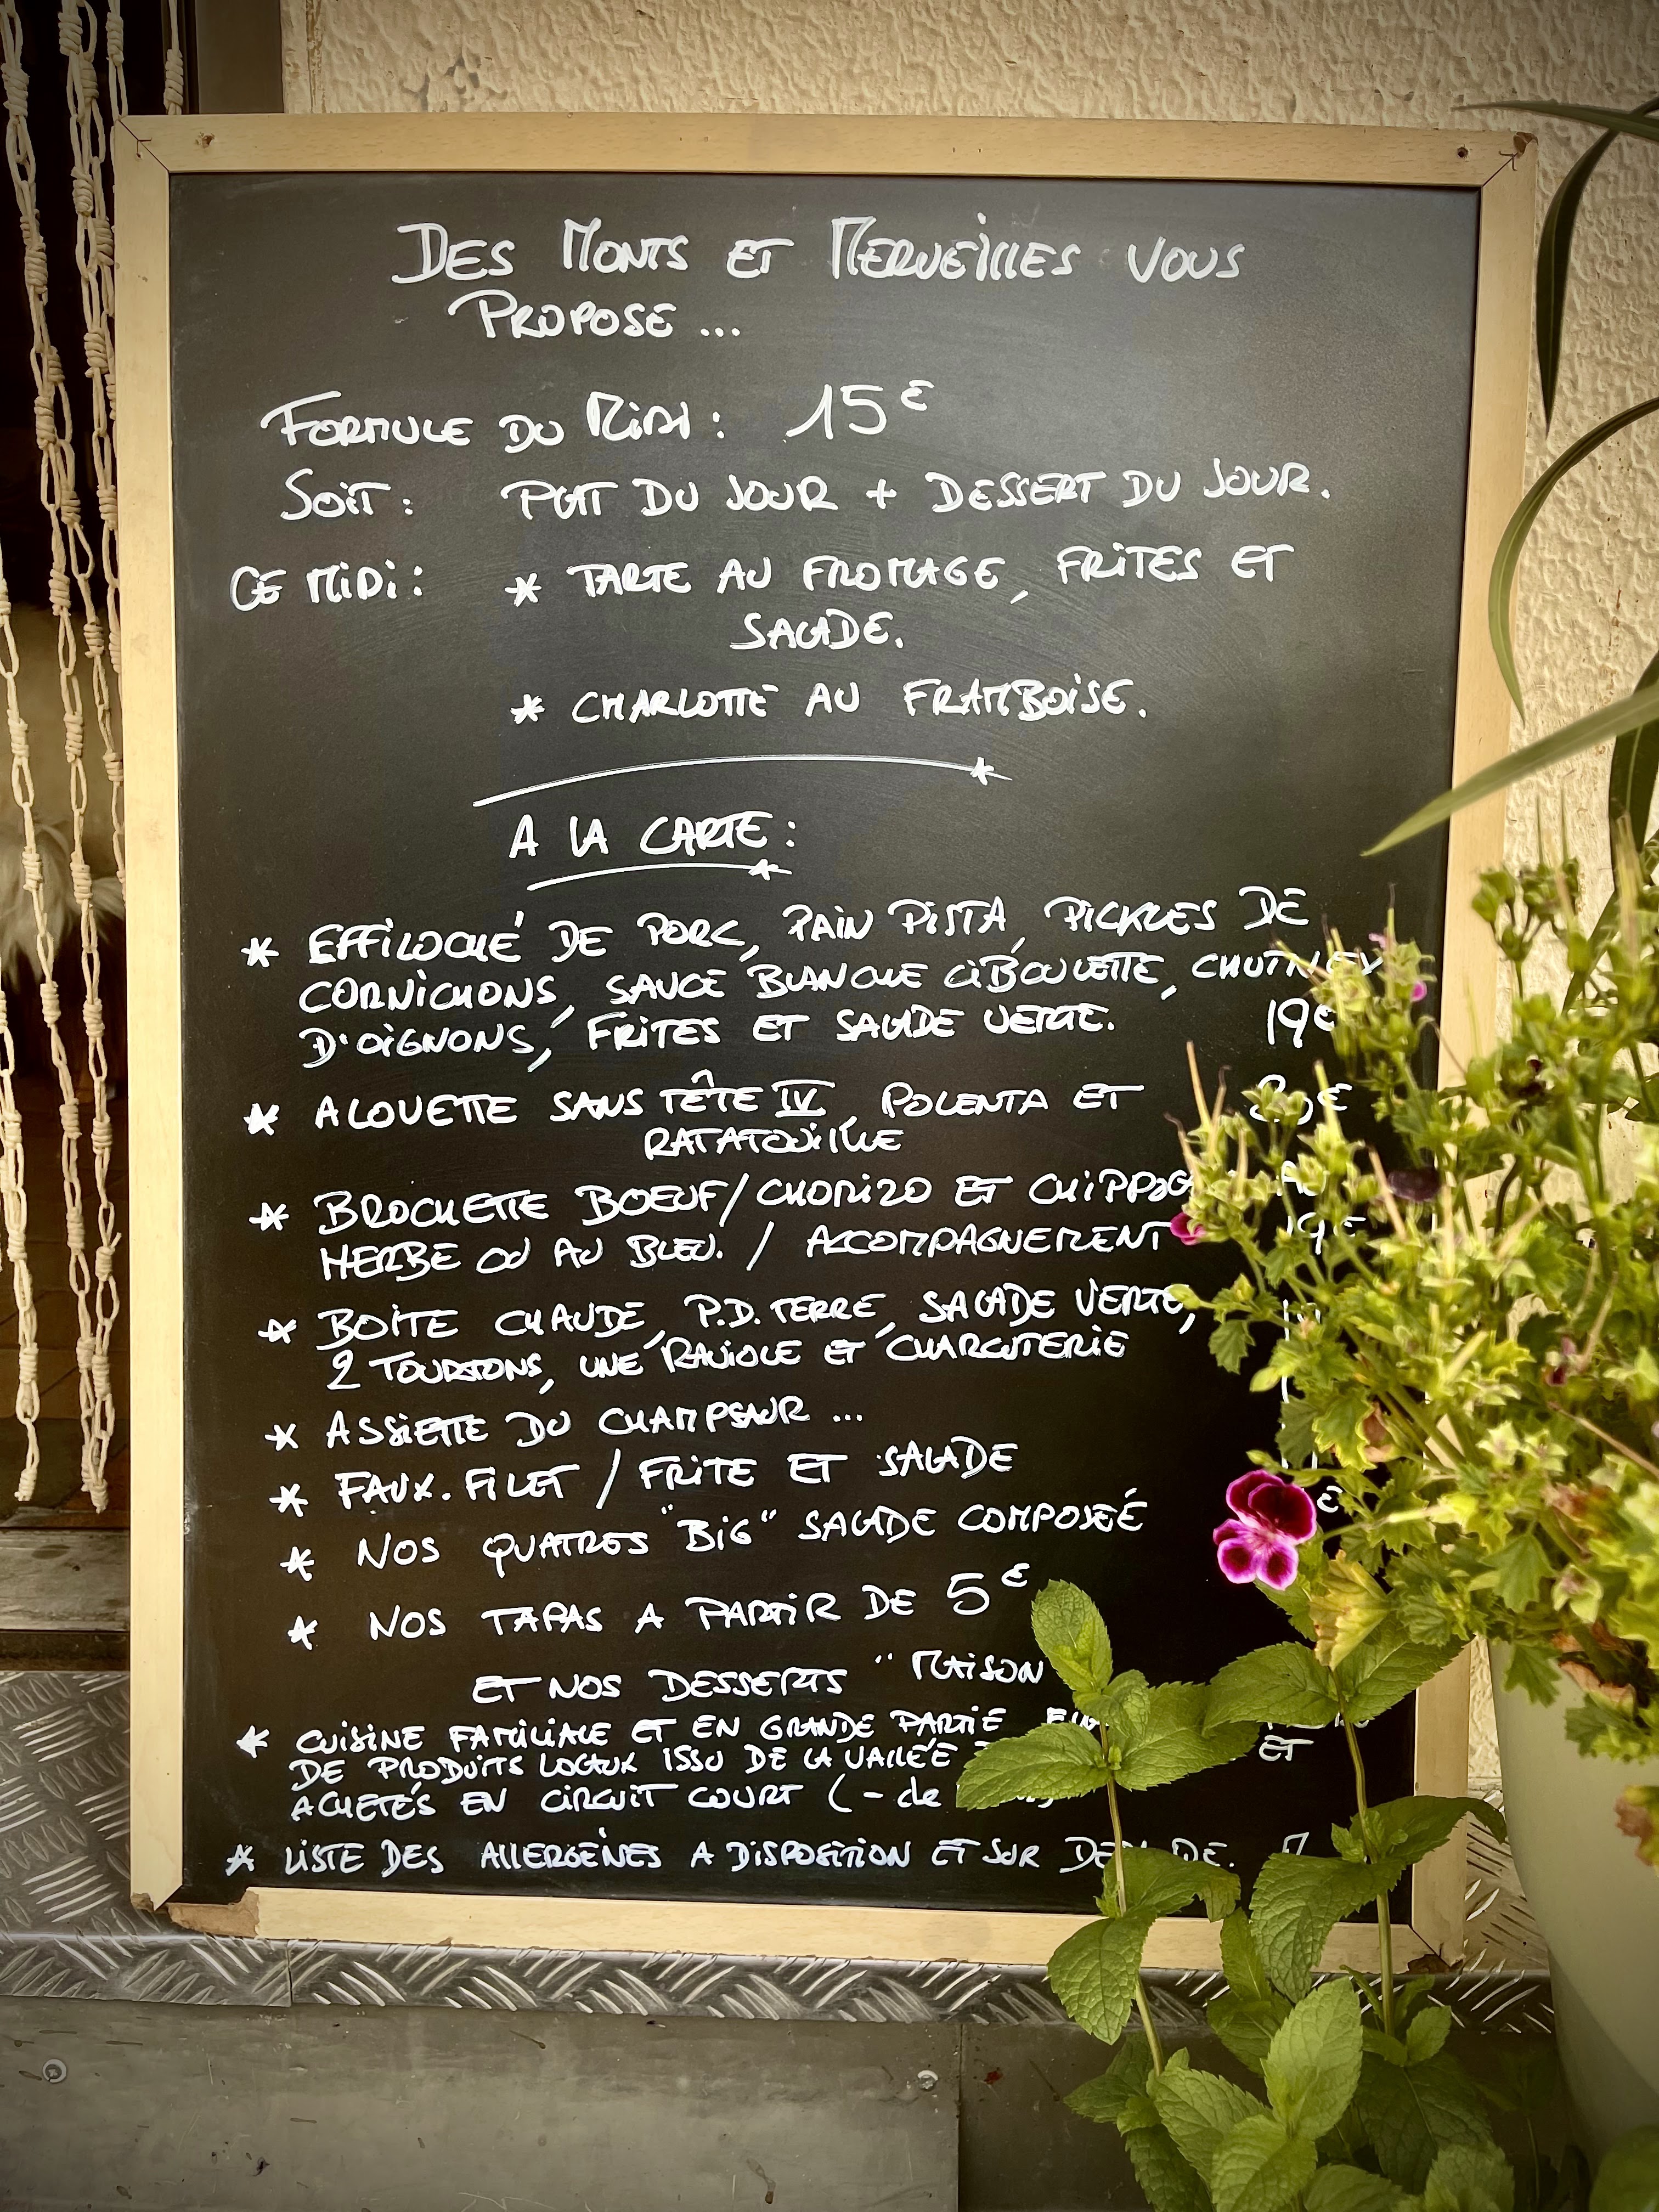 DES MONTS ET MERVEILLES VOUS
PROPOSE ...
FORMULE DU MIDI : 15€
SOIT : PLAT DU JOUR + DESSERT DU JOUR.
CE MIDI : * TARTE AU FROMAGE, FRITES ET
SALADE.
* CHARLOTTE AU FRAMBOISE.
A LA CARTE :
* EFFILOCHÉ DE PORC, PAIN PISTA, PICKLES DE
CORNICHONS, SAUCE BLANCHE CIBOULETTE, CHUTNEY
D'OIGNONS, FRITES ET SALADE VERTE. 19€
* ALOUETTE SANS TÊTE IV, POLENTA ET
RATATOUILLE
* BROCHETTE BOEUF/CHORIZO ET
HERBE OU AU BLEU. / ACCOMPAGNEMENT 19€
* BOITE CHAUDE, P.D.TERRE, SALADE VERTE,
2 TOURTONS, UNE RAVIOLE ET CHARCUTERIE
* ASSIETTE DU CHAMPSAUR ...
* FAUX.FILET / FRITE ET SALADE
€
* NOS QUATRES "BIG" SALADE COMPOSEÉ
* NOS TAPAS A PARTIR DE 5€
ET NOS DESSERTS " MAISON
* CUISINE FAMILIALE ET EN GRANDE PARTIE
DE PRODUITS LOCAUX ISSU DE LA VALLÉE ET
ACHETÉS EN CIRCUIT COURT (- de
* LISTE DES ALLERGÈNES A DISPOSITION ET SUR